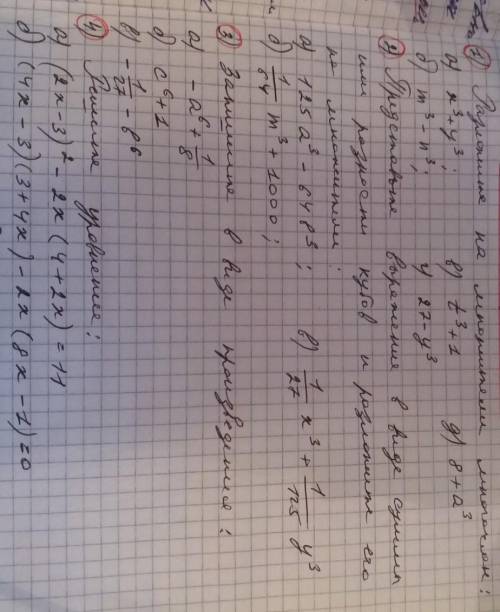 ① Разложите на множители многочлен:
а) x³+y³; в) t³+1 д) 8+a³
б) m³-n³; г) 27-y³
② Представьте выражение в виде суммы
или разности кубов и разложите его
на множители:
а) 125a³-64b³; в) 1/27 x³ + 1/125 y³
б) 1/64 m³+1000;
③ Запишите в виде произведения:
а) -a⁶+1/8
б) c⁶+1
в) -1/27-b⁶
④ Решите уравнение:
а) (2x-3)²-2x(4+2x)=11
б) (4x-3)(3+4x)-2x(8x-1)=0